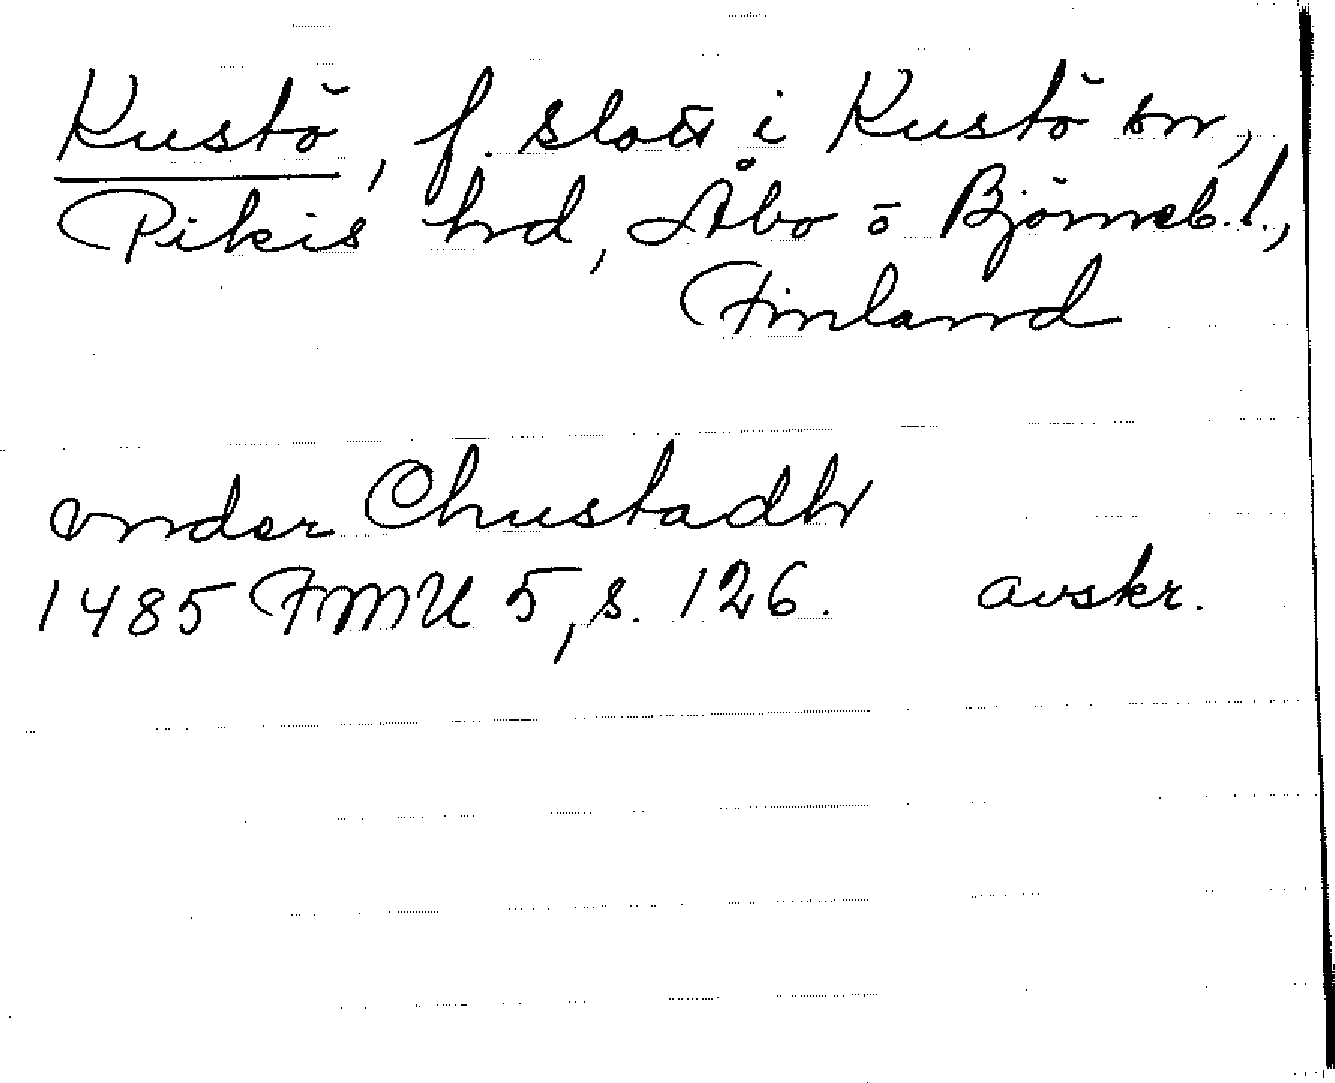 Kustö, f. slott i Kustö sn,
Pikis hd, Åbo o Björneb. l.,
Finland
vnder Chustadh
1485 FMU 5, s. 126. avskr.